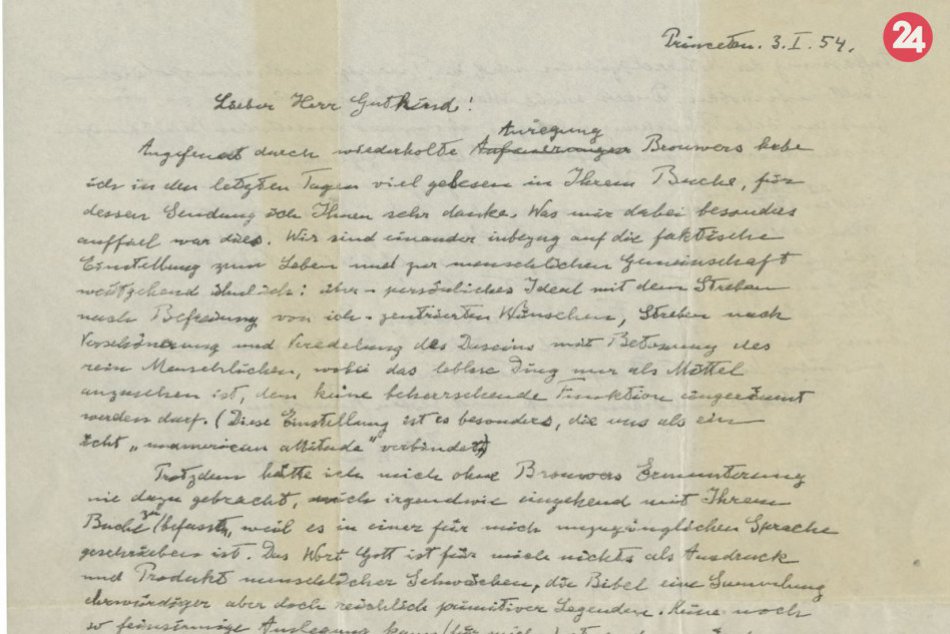 24
Princeton. 3. I. 54.
Lieber Herr Gutkind!
Anregung
Angefeuert durch wiederholte Aufeuerungen Brouwers habe
ich in den letzten Tagen viel gelesen in Ihrem Buche, für
dessen Sendung ich Ihnen sehr danke. Was mir dabei besonders
auffiel war dies. Wir sind einander inbezug auf die faktische
Einstellung zum Leben und zur menschlichen Gemeinschaft
weitgehend ähnlich: über-persönliches Ideal mit dem Streben
nach Befreiung von ich-zentrierten Wünschen, Streben nach
Verschönerung und Veredelung des Daseins mit Betonung des
rein Menschlichen, wobei das leblose Ding nur als Mittel
anzusehen ist, dem keine beherrschende Funktion eingeräumt
werden darf. (Diese Einstellung ist es besonders, die uns als ein
echt „unamerican attitude" verbindet)
Trotzdem hätte ich mich ohne Brouwers Ermunterung
nie dazu gebracht, mich irgendwie eingehend mit Ihrem
Buche zu befassen, weil es in einer für mich unzugänglichen Sprache
geschrieben ist. Das Wort Gott ist für mich nichts als Ausdruck
und Produkt menschlicher Schwächen, die Bibel eine Sammlung
ehrwürdiger aber doch reichlich primitiver Legenden. Keine noch
so feinsinnige Auslegung kann (für mich)